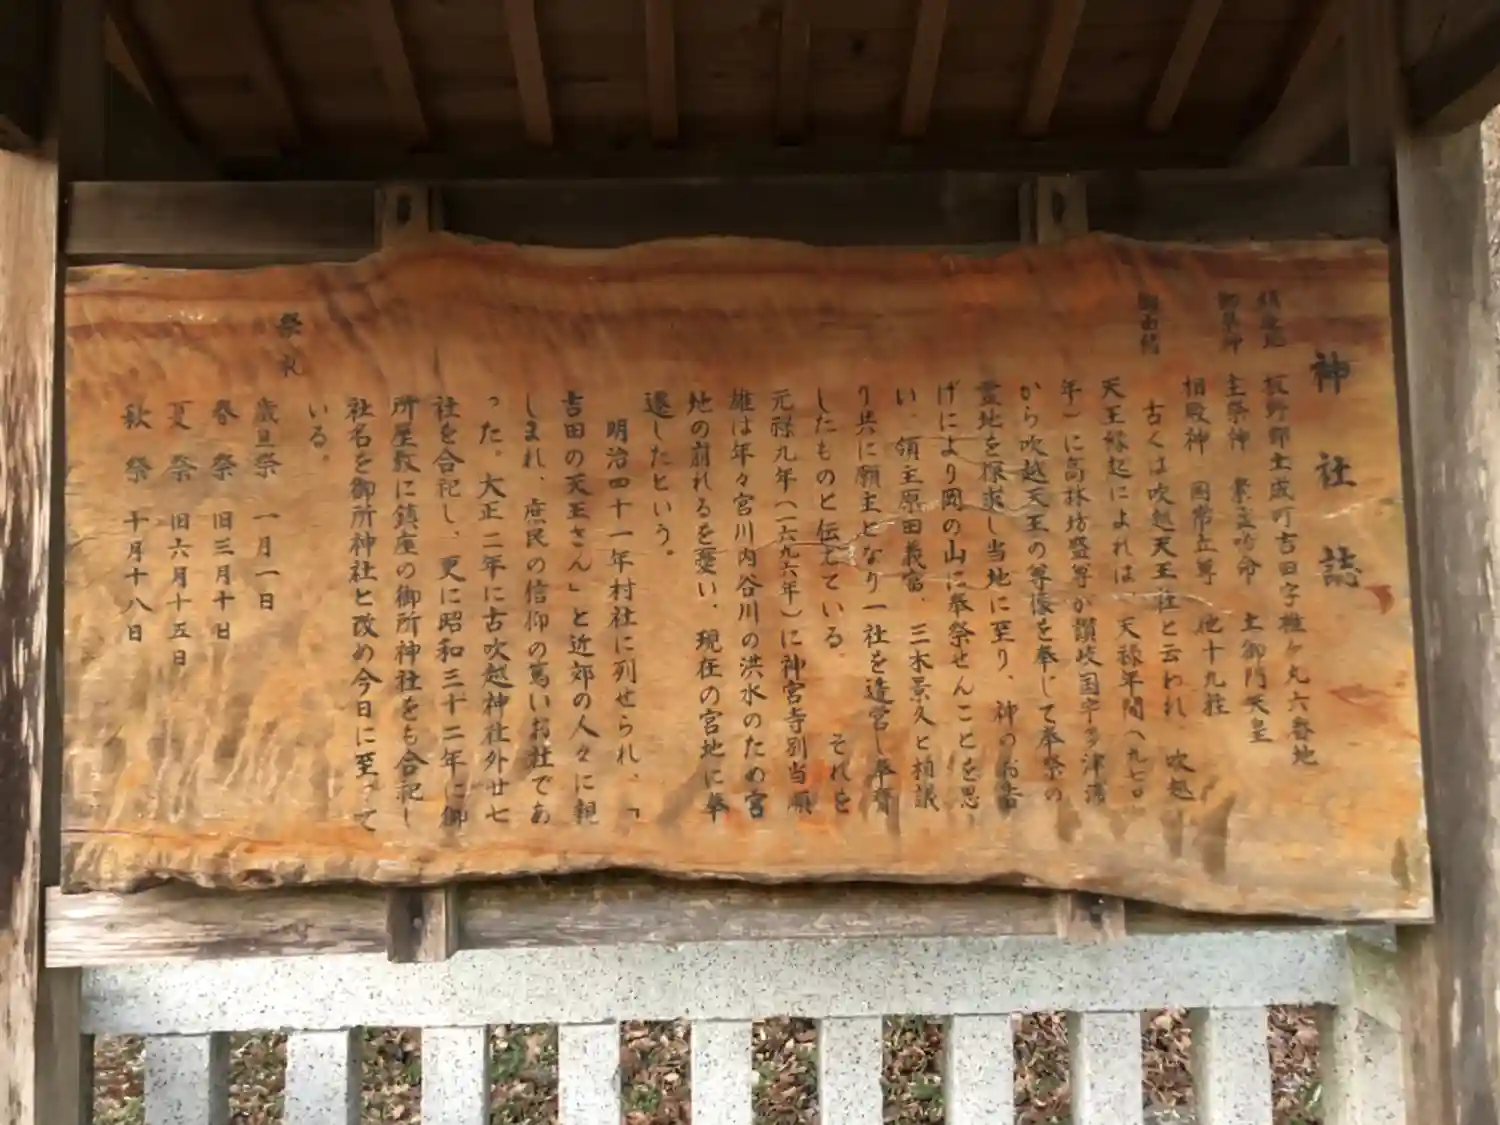 神社誌
鎮座地 板野郡土成町吉田字椎ケ丸六番地
御祭神 主祭神 素盞嗚命 土御門天皇
相殿神 国常立尊 他十九柱
御由緒
古くは吹越天王社と云われ、吹越
天王縁起によれば、天禄年間(九七〇
年)に高林坊盛尊が讃岐国宇多津浦
から吹越天王の尊像を奉じて奉祭の
霊地を探求し当地に至り、神のお告
げにより岡の山に奉祭せんことを思
い、領主原田義富、三木景久と相議
り共に願主となり一社を造宮し奉賽
したものと伝えている。 それを
元禄九年(一六九六年)に神宮寺別当願
雄は年々宮川内谷川の洪水のため宮
地の崩れるを憂い、現在の宮地に奉
遷したという。
明治四十一年村社に列せられ、「
吉田の天王さん」と近郊の人々に親
しまれ、庶民の信仰の篤いお社であ
った。大正二年に古吹越神社外廿七
社を合祀し、更に昭和三十二年に御
所屋敷に鎮座の御所神社をも合祀し
社名を御所神社と改め今日に至って
いる。
祭礼
歳旦祭 一月一日
春祭 旧三月十日
夏祭 旧六月十五日
秋祭 十月十八日